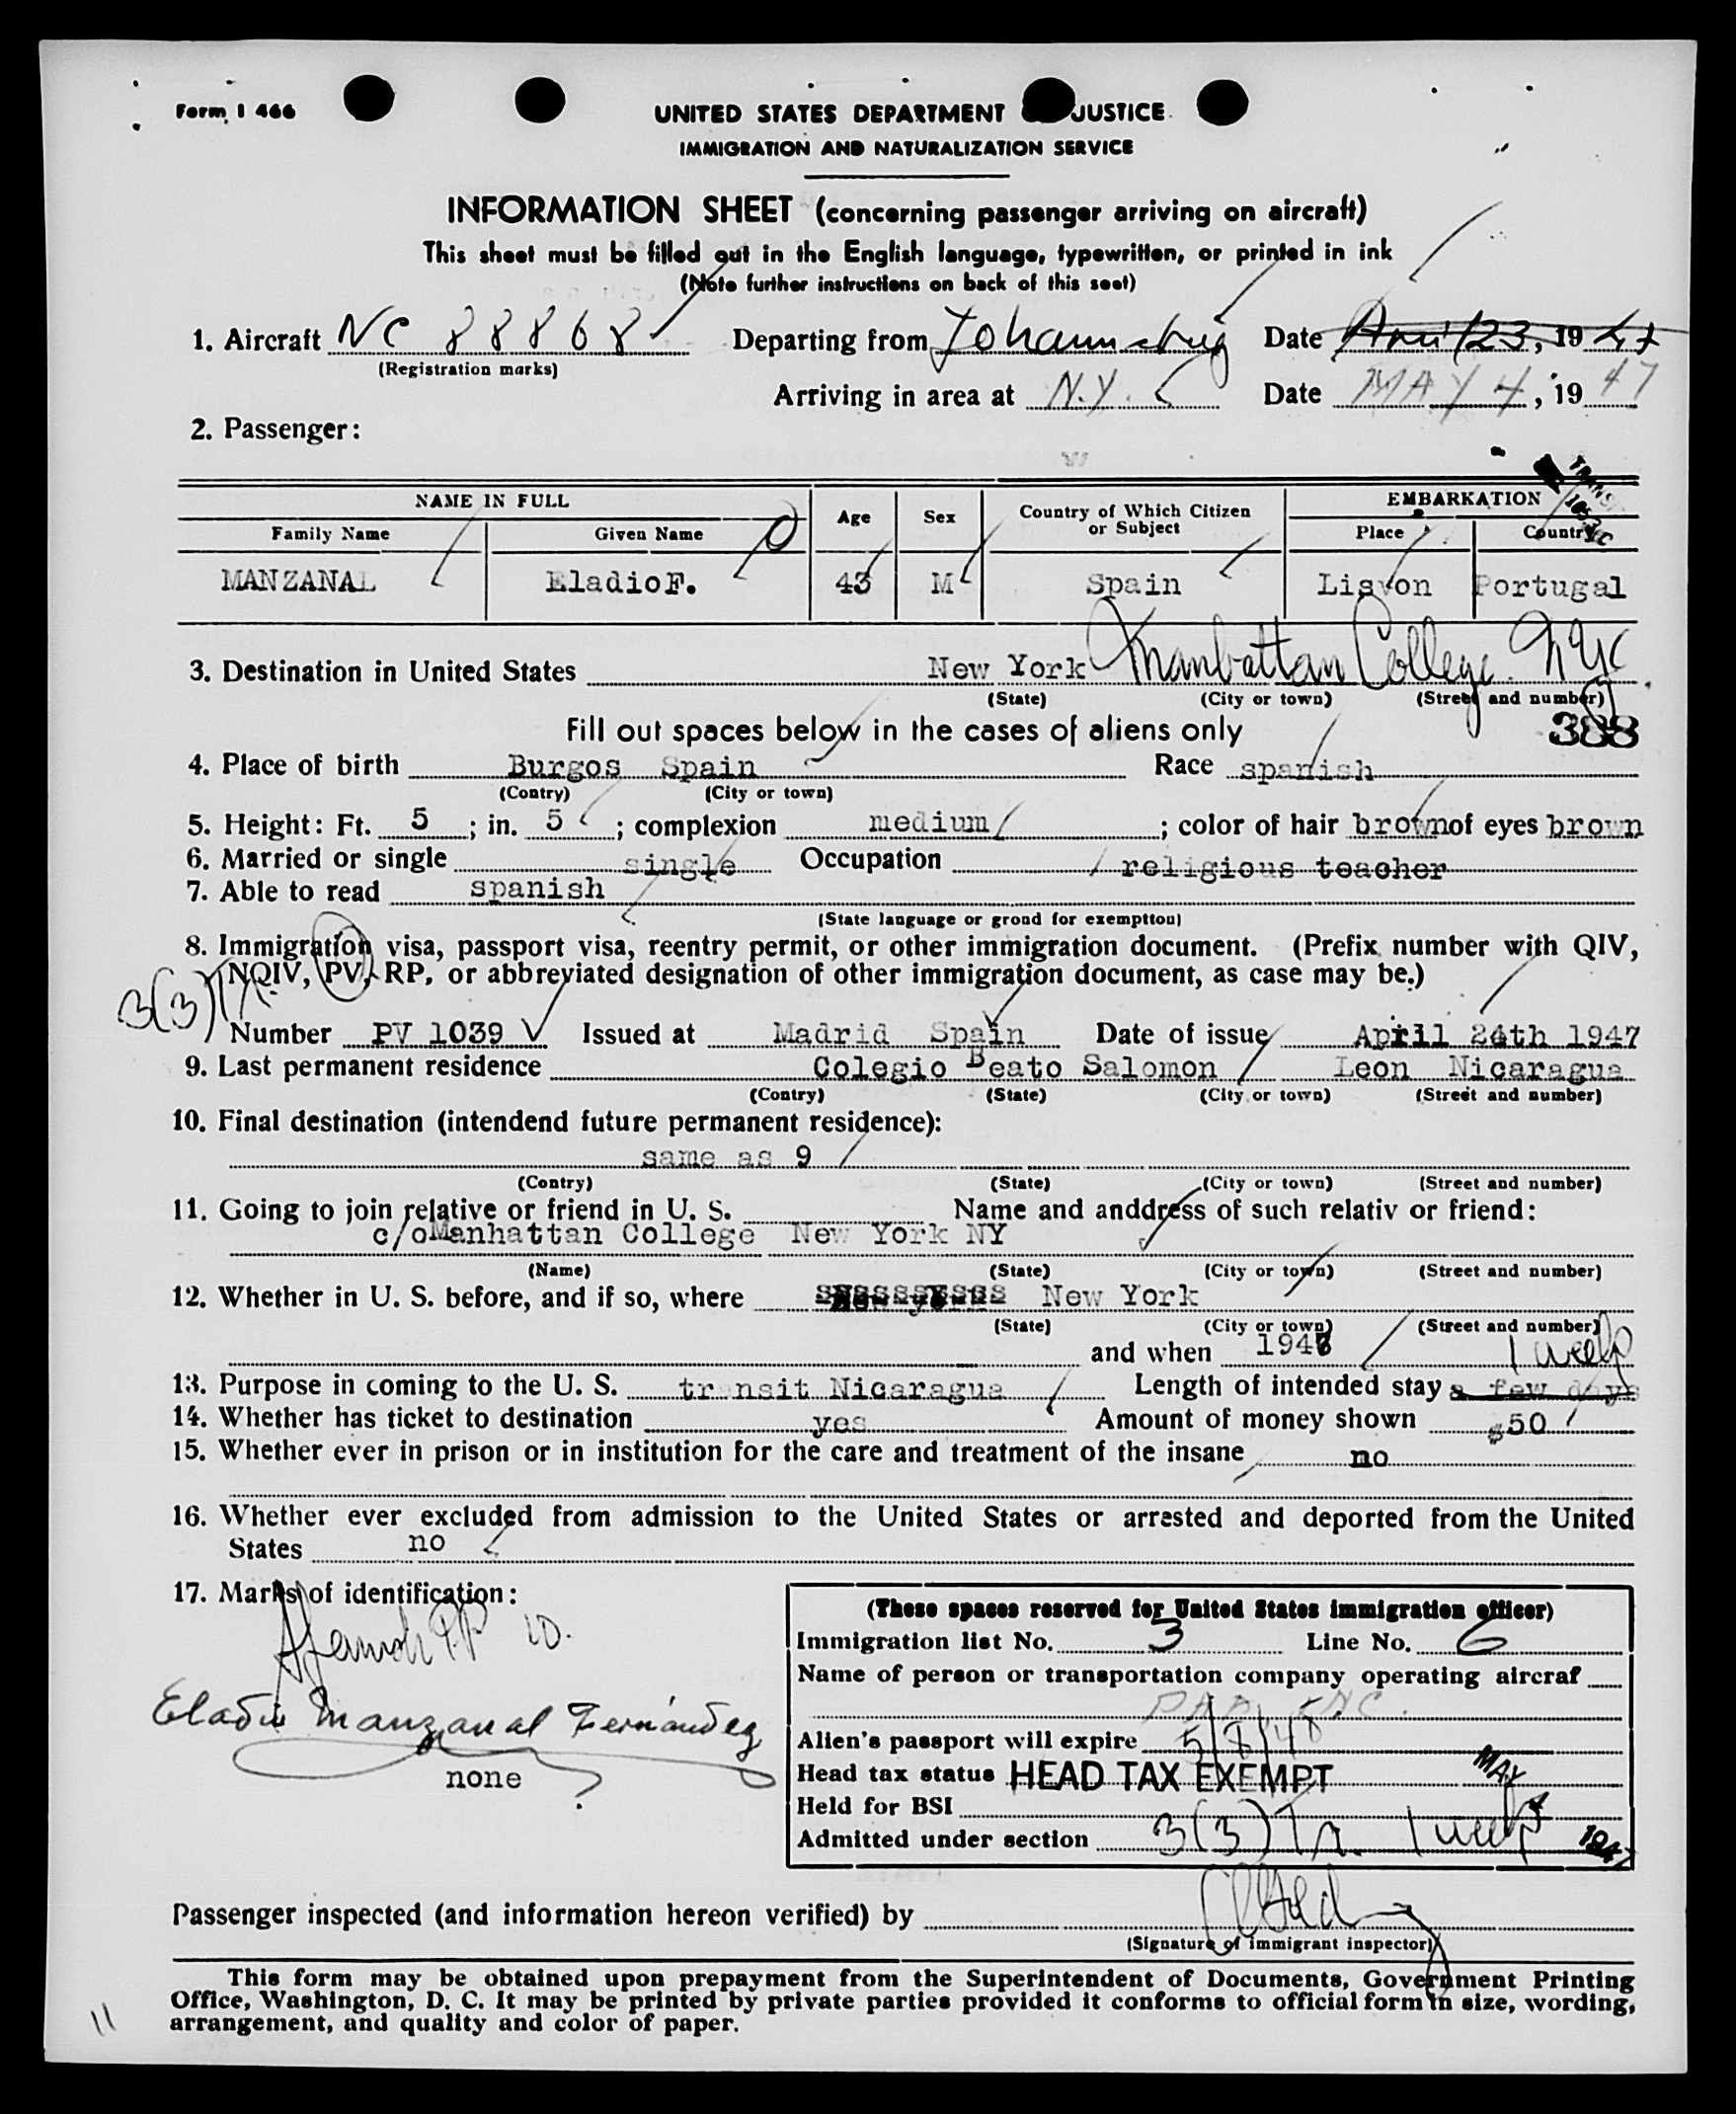 Form I 466
UNITED STATES DEPARTMENT JUSTICE
IMMIGRATION AND NATURALIZATION SERVICE
INFORMATION SHEET (concerning passenger arriving on aircraft)
This sheet must be filled out in the English language, typewritten, or printed in ink
(Note further instructions on back of this seet)
1. Aircraft NC 88868 Departing from Date April 23, 19 47
(Registration marks)
Arriving in area at N.Y. Date MAY 4, 19 47
2. Passenger:
NAME IN FULL Age Sex Country of Which Citizen or Subject EMBARKATION
Family Name Given Name Place Country
MANZANAL EladioF. 43 M Spain Lisvon Portugal
3. Destination in United States New York Manhattan College. NYC
(State) (City or town) (Street and number)
Fill out spaces below in the cases of aliens only 388
4. Place of birth Burgos Spain Race spanish
(Contry) (City or town)
5. Height: Ft. 5 ; in. 5 ; complexion medium ; color of hair brown of eyes brown
6. Married or single single Occupation religious teacher
7. Able to read spanish
(State language or grond for exempttou)
8. Immigration visa, passport visa, reentry permit, or other immigration document. (Prefix number with QIV,
NQIV, PV, RP, or abbreviated designation of other immigration document, as case may be.)
3(3)
Number PV 1039 Issued at Madrid Spain Date of issue April 24th 1947
9. Last permanent residence Colegio Beato Salomon Leon Nicaragua
(Contry) (State) (City or town) (Street and number)
10. Final destination (intendend future permanent residence):
same as 9
(Contry) (State) (City or town) (Street and number)
11. Going to join relative or friend in U. S. Name and anddress of such relativ or friend:
c/oManhattan College New York NY
(Name) (State) (City or town) (Street and number)
12. Whether in U. S. before, and if so, where New York
(State) (City or town) (Street and number)
and when 194 1 week
13. Purpose in coming to the U. S. transit Nicaragua Length of intended stay a few days
14. Whether has ticket to destination yes Amount of money shown $50
15. Whether ever in prison or in institution for the care and treatment of the insane no
16. Whether ever excluded from admission to the United States or arrested and deported from the United
States no
17. Marks of identification:
Eladio Manzanal Fernández
none
(These spaces reserved for United States immigration officer)
Immigration list No. 3 Line No. 6
Name of person or transportation company operating aircraf
PAA INC.
Alien's passport will expire 5/8/48
Head tax status HEAD TAX EXEMPT
Held for BSI
Admitted under section 3(3) 1 week
MAY 4 1947
Passenger inspected (and information hereon verified) by
(Signature of immigrant inspector)
This form may be obtained upon prepayment from the Superintendent of Documents, Government Printing
Office, Washington, D. C. It may be printed by private parties provided it conforms to official form in size, wording,
arrangement, and quality and color of paper.
11